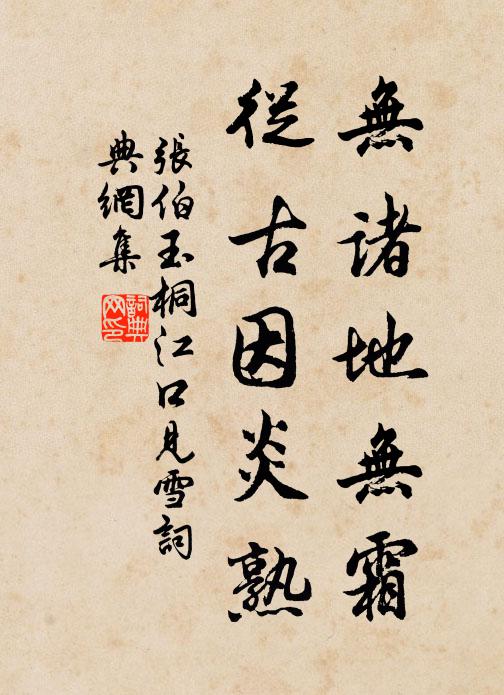 無諸地無霜
從古因炎熟
張伯玉桐江口見雪詞
典網集
詞典網印